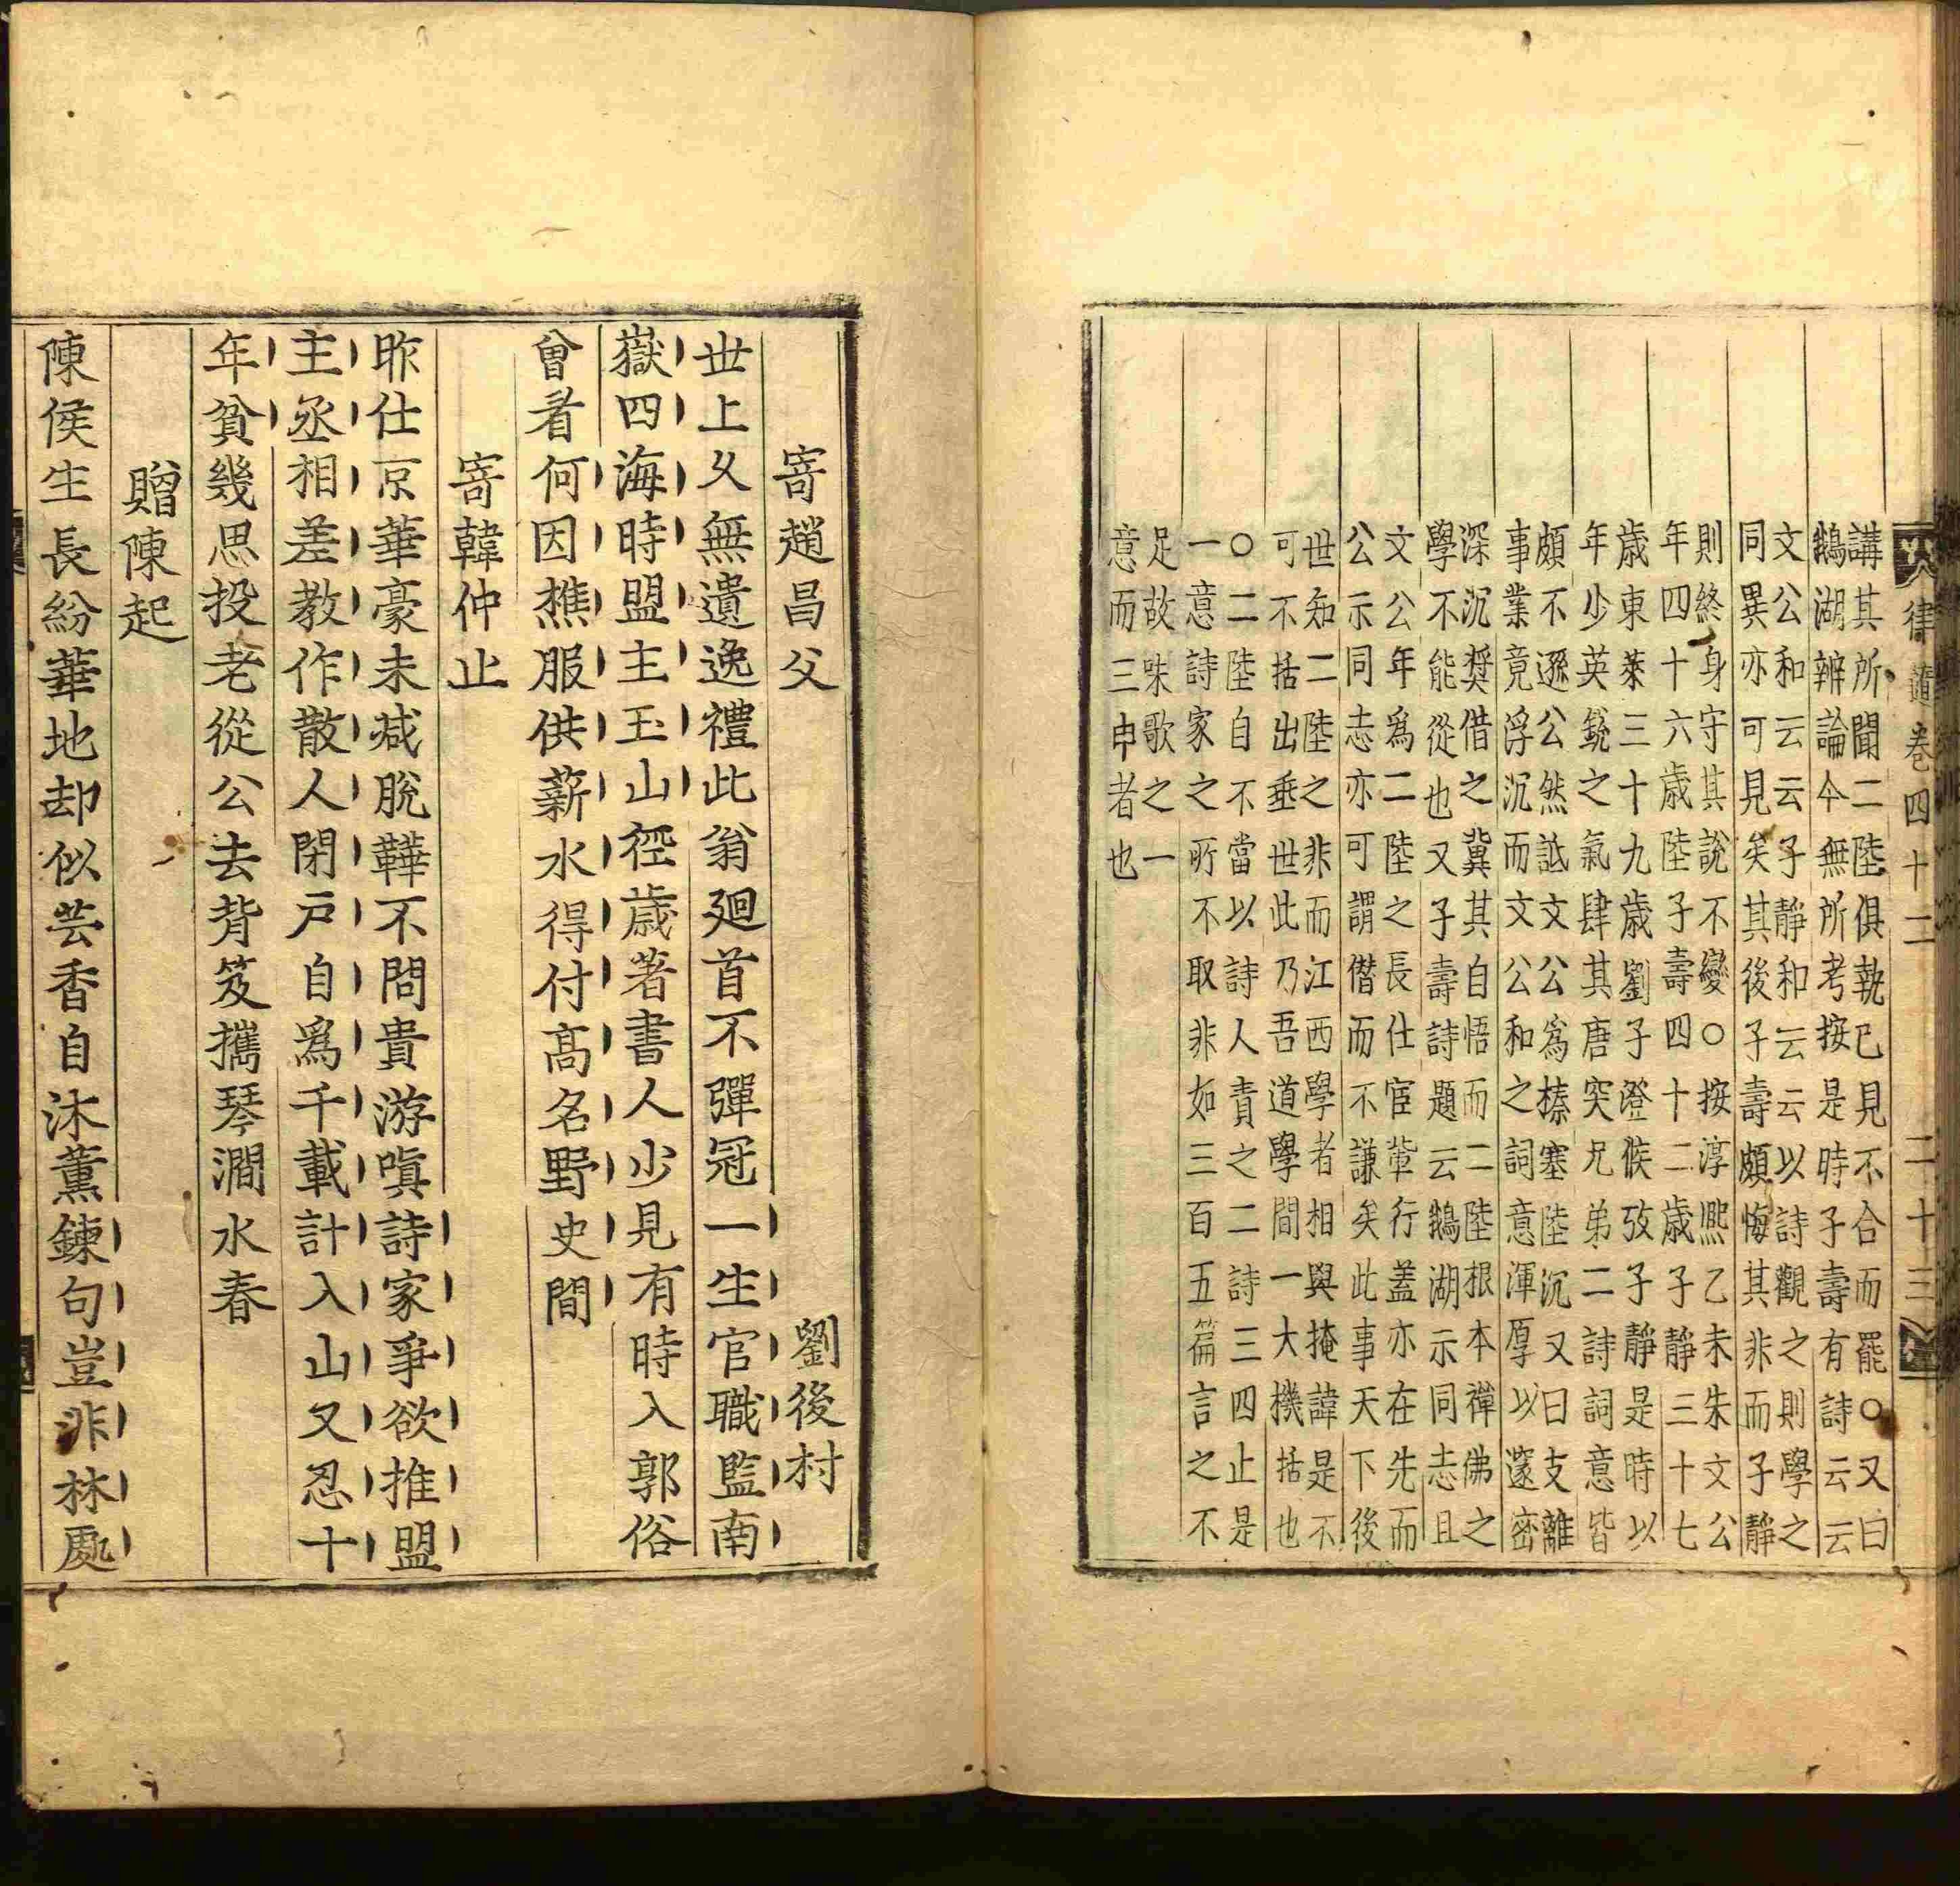 律髓卷四十二　二十三
講其所聞二陸俱執已見不合而罷○又曰
鵝湖辨論今無所考按是時子壽有詩云云
文公和云云子靜和云云以詩觀之則學之
同異亦可見矣其後子壽頗悔其非而子靜
則終身守其說不變○按淳熙乙未朱文公
年四十六歲陸子壽四十二歲子靜三十七
歲東萊三十九歲劉子澄候攷子靜是時以
年少英銳之氣肆其唐突兄弟二詩詞意皆
頗不遜公然詆文公為榛塞陸沉又曰支離
事業竟浮沉而文公和之詞意渾厚以邃密
深沉奬借之冀其自悟而二陸根本禪佛之
學不能從也又子壽詩題云鵝湖示同志且
文公年爲二陸之長仕宦輩行蓋亦在先而
公示同志亦可謂僭而不謙矣此事天下後
世知二陸之非而江西學者相與掩諱是不
可不括出垂世此乃吾道學間一大機括也
○二陸自不當以詩人責之二詩三四止是
一意詩家之所不取非如三百五篇言之不
足故咏歌之一
意而三申者也
寄趙昌父　劉後村
世上久無遺逸禮此翁廻首不彈冠一生官職監南
嶽四海時盟主玉山徑歲著書人少見有時入郭俗
曾看何因樵服供薪水得付高名野史間
寄韓仲止
昨仕京華豪未減脫鞾不問貴游嗔詩家爭欲推盟
主丞相差教作散人閉戶自爲千載計入山又忍十
年貧幾思投老從公去背笈攜琴澗水春
贈陳起
陳侯生長紛華地却似芸香自沐薰鍊句豈非林處